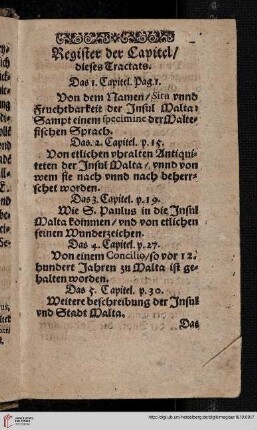 Register der Capitel/
dieses Tractats.
Das 1. Capitel. Pag. 1.
Von dem Namen/ Situ vnnd
Fruchtbarkeit der Insul Malta:
Sampt einem specimine der Malte-
sischen Sprach.
Das. 2. Capitel. p. 15.
Von etlichen vhralten Antiqui-
teten der Insul Malta/ vnnd von
wem sie nach vnnd nach beherr-
schet worden.
Das 3. Capitel. p. 19.
Wie S. Paulus in die Insul
Malta kommen/ vnd von etlichen
seinen Wunderzeichen.
Das 4. Capitel. p. 27.
Von einem Concilio/ so vor 12.
hundert Jahren zu Malta ist ge-
halten worden.
Das 5. Capitel. p. 30.
Weitere beschreibung der Insul
vnd Stadt Malta.
Das